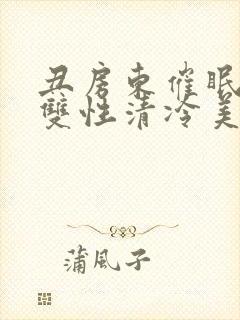 丑房東催眠
雙性清冷美
蒲風子